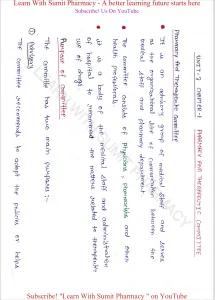 Learn With Sumit Pharmacy - A better learning future starts here
Subscribe! Us On YouTube
UNIT-2 CHAPTER-1 PHARMACY AND THERAPEUTIC COMMITTEE
Pharmacy and Therapeutic Committee
It is an advisory group of medical staff and serves
as the organisation line of communication between the
medical staff and pharmacy department
The committee consists of Physicians, pharmacists and other
health professionals
It is a body of the medical staff and administration
of hospital to recommend the matters related to therapeutic
use of drugs.
Purpose of Committee
The committee has two main purposes :-
① Advisory
The committee recommends to adopt the policies or helps
PHARMACY
Subscribe! "Learn With Sumit Pharmacy " on YouTube